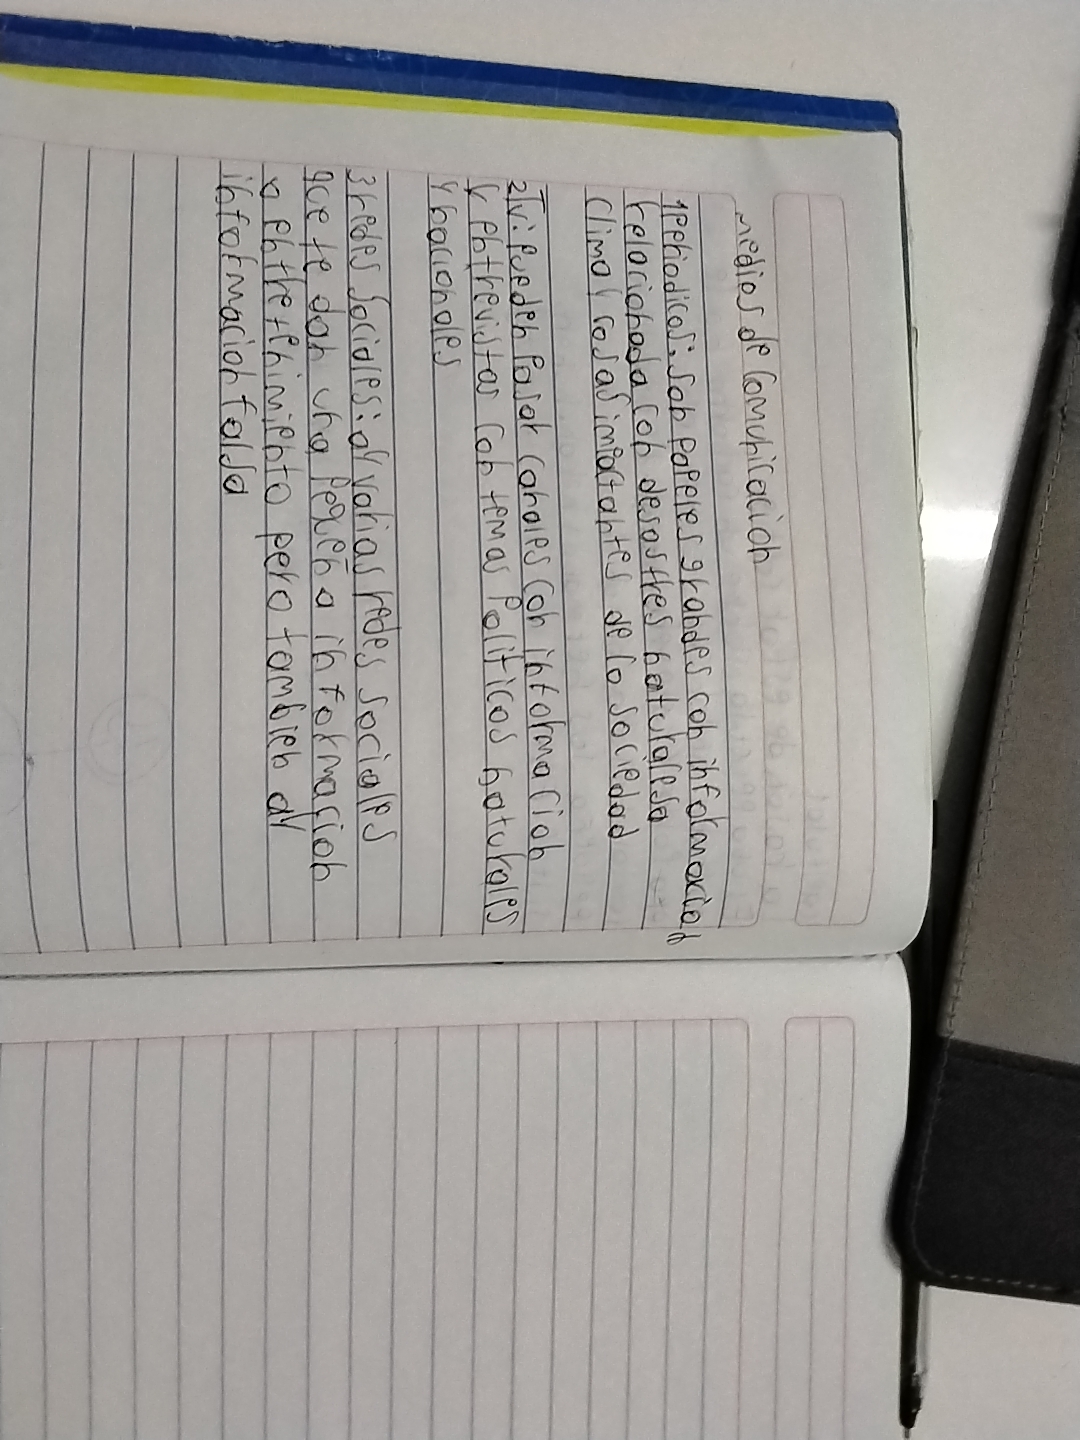 medios de comunicacion
1Periodicos: son papeles grandes con informacion
relacionada con desastres naturalesa
clima y cosas imiortantes de lo sociedad
2Tv: pueden pasar canales con informacion
y entrevistas con temas políticos naturales
y nacionales
3 redes sociales: ay varias redes sociales
que te dan una peqeña informacion
o entretenimiento pero tambien ay
informacion falsa